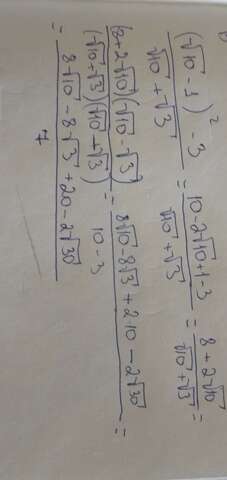 (√10 - 1)² - 3 / √10 + √3 = 10 - 2√10 + 1 - 3 / √10 + √3 = 8 + 2√10 / √10 + √3 =
(8 + 2√10)(√10 - √3) / (√10 + √3)(√10 + √3) = 8√10 - 8√3 + 2·10 - 2√30 / 10 - 3 =
= 8√10 - 8√3 + 20 - 2√30 / 7